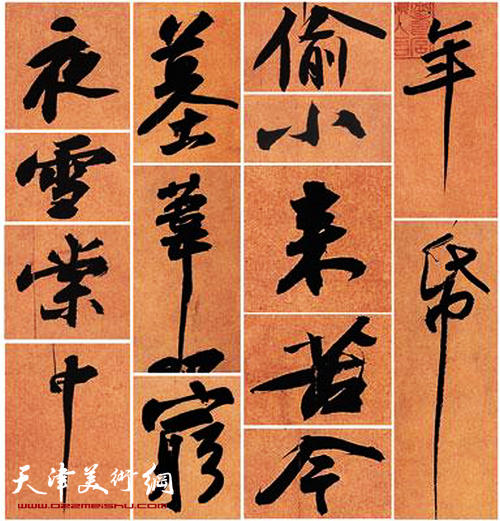 年
帋
偷
小
来
苦
今
墓
葦
窮
夜
雪
棠
中
天津美術網
www.022meishu.com